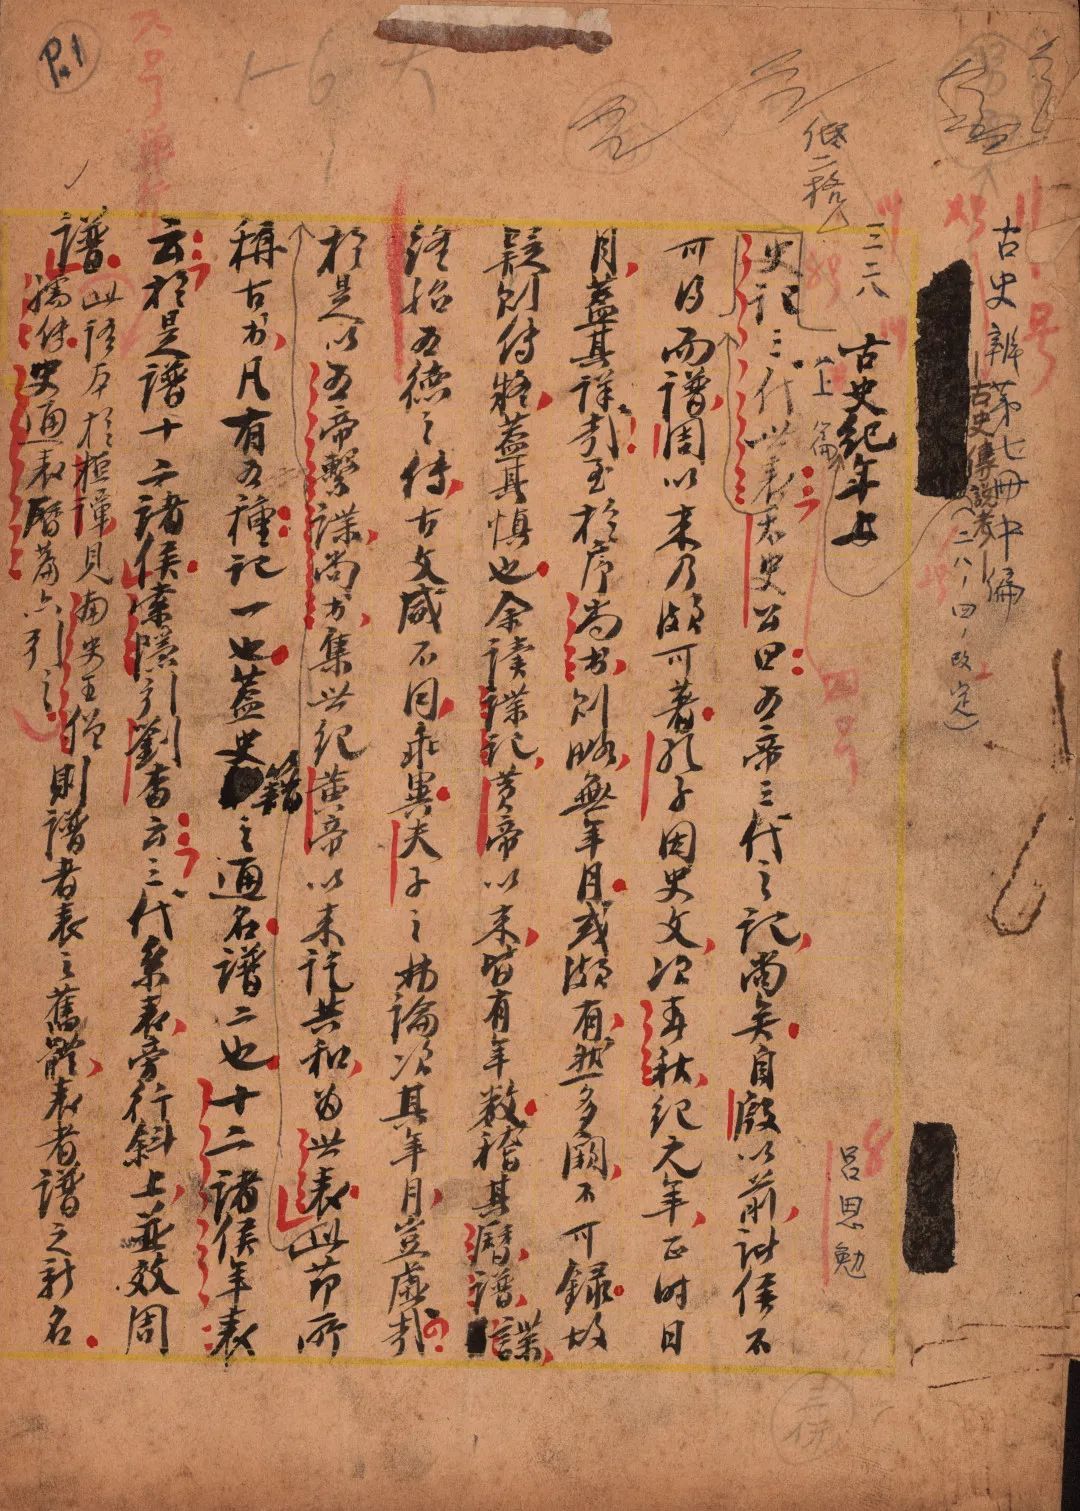 P.1
古史辨第七册中編
古史傳說考
(二八、四、改定)
三二八
古史紀年上
上篇
呂思勉
史記三代世表太史公曰五帝三代之記尚矣自殷以前諸侯不
可得而譜周以來乃頗可著孔子因史文次春秋紀元年正時日
月蓋其詳哉至於序尚书則略無年月或頗有然多闕不可錄故
疑則傳疑蓋其慎也余讀諜記黃帝以來皆有年數稽其曆譜諜
終始五德之傳古文咸不同乖異夫子之弗論次其年月豈虛哉
於是以五帝繫諜尚书集世紀黃帝以來訖共和為世表此節所
稱古书凡有五種記一也蓋史籍之通名譜二也十二諸侯年表
云於是譜十二諸侯索隱引劉杳云三代系表旁行斜上並效周
譜此語本於桓譚見南史王僧孺传史通表曆篇亦引之則譜者表之舊體表者譜之新名
四号